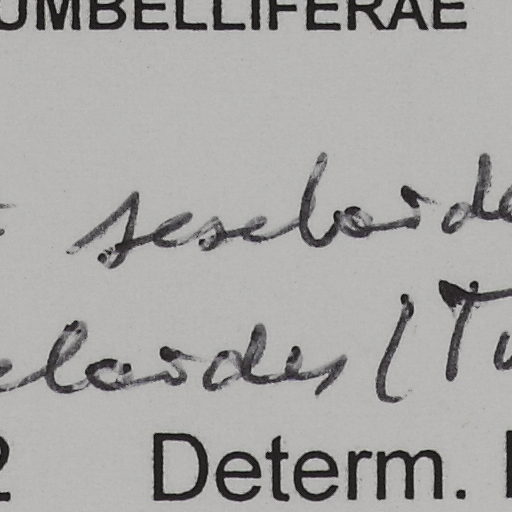 UMBELLIFERAE
seseloide
eloides (Tu
2 Determ.